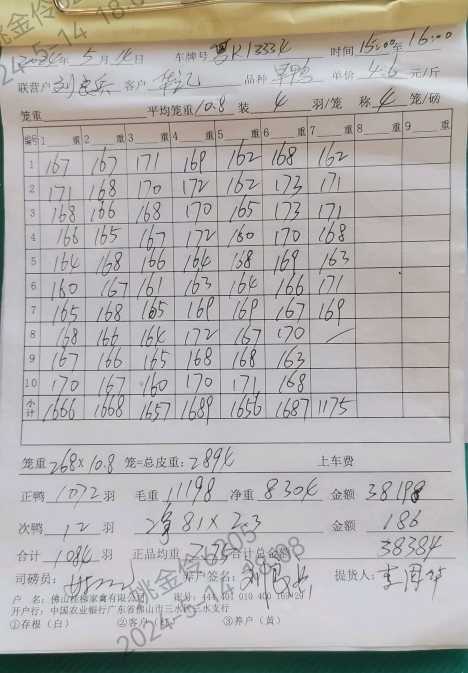 2024年5月14日 车牌号 粤K1333K 时间15:00年16:00
联营户 客户 品种 单鸭 单价 4.6 元/斤
笼重 平均笼重10.8 装 4 羽/笼 称 4 笼/磅
编号 1 重 2 重 3 重 4 重 5 重 6 重 7 重 8 重 9 重
1 167 167 171 169 162 168 162
2 171 168 170 172 162 173 171
3 168 166 168 170 165 173 171
4 166 165 167 172 160 170 168
5 164 168 166 164 168 169 163
6 160 167 161 163 164 166 171
7 165 168 165 169 169 167 169
8 168 166 164 172 167 170
9 167 166 165 168 168 163
10 170 167 160 170 171 168
小计 1666 1668 1657 1689 1656 1687 1175
笼重268×10.8 笼=总皮重:2894 上车费
正鸭 1072 羽 毛重 11198 净重 8304 金额 38198
次鸭 12 羽 81×2.3 金额 186
合计 1084 羽 正品均重 7.75 合计总金额 38384
司磅员: 养户签名: 提货人:
户 名: 佛山 家禽有限公司
开户行: 中国农业银行广东省佛山市三水区三水支行
①存根(白) ②客户(红) ③养户(黄)
姚金伶6205
2024-5-14 18:08